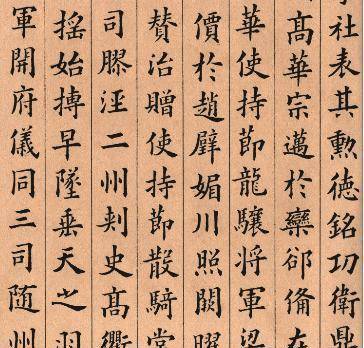 社表其勲德銘功衛鼎
髙華宗邁於欒郤俻在
華使持節龍驤将軍梁
價於趙璧媚川照闕曜
賛治贈使持節散騎常
司膠涇二州刾史髙衢
揺始摶早墜垂天之羽
軍開府儀同三司随州